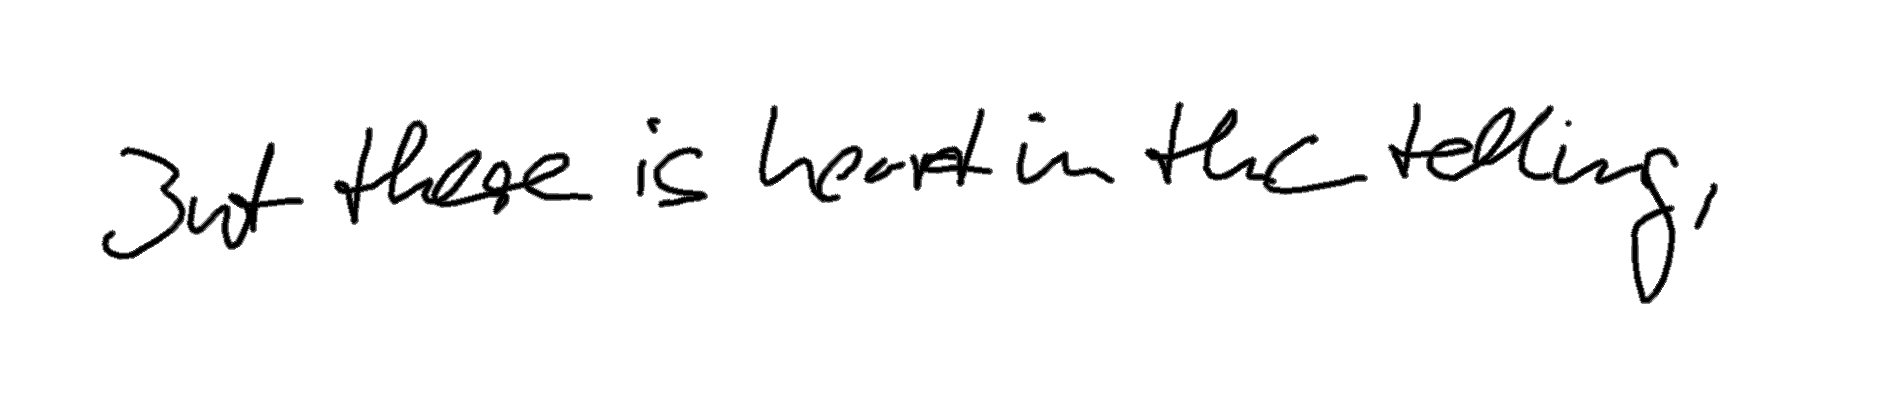 But there is heart in the telling,